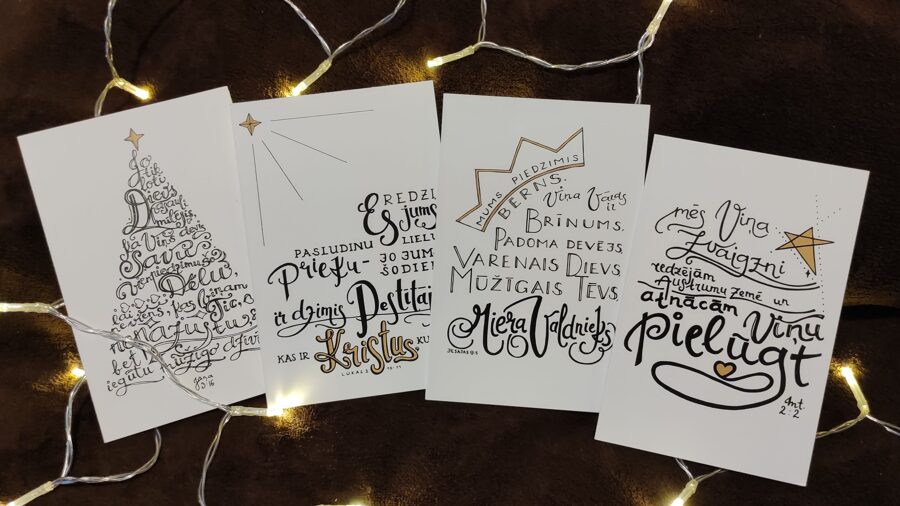 Jo
tik
ļoti
Dievs
pasauli
mīlējis,
ka Viņš devis
Savu
vienpiedzimušo
Dēlu,
lai neviens, kas Viņam
tic,
nepazustu,
bet
iegūtu mūžīgo dzīvī
Jāņa
3:16
REDZI
Es jums
PASLUDINU LIELU
Prieku-
JO JUM
ŠODIEN
ir dzimis Pestītāj
KAS IR Kristus KU
LUKASS 2:10-11
MUMS PIEDZIMIS
BERNS.
Viņa Vārds
ir
BRĪNUMS,
PADOMA DEVĒJS,
VARENAIS DIEVS,
MŪŽĪGAIS TĒVS,
Miera Valdnieks
JESAJAS 9:5
mēs Viņa
Zvaigzni
redzējām
Austrumu zemē un
atnācām
Viņu
pielūgt
Mt.
2:2